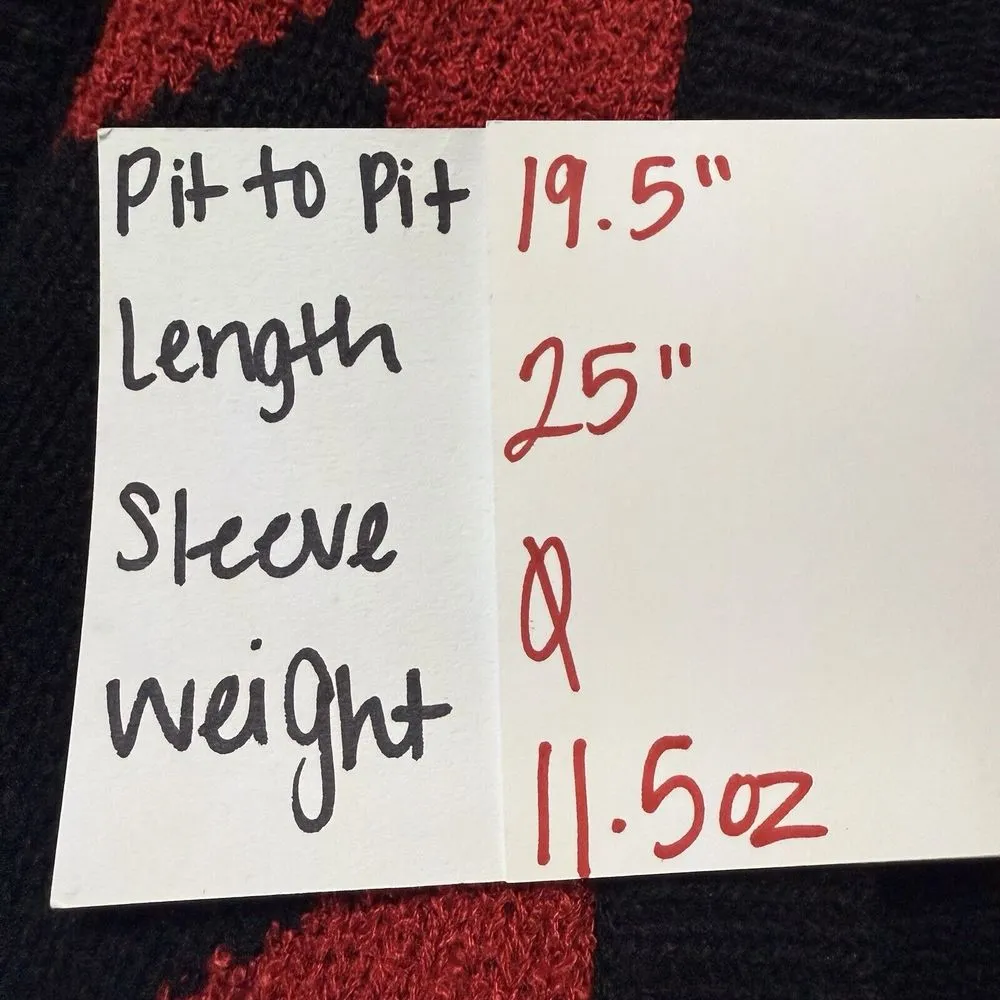 Pit to Pit 19.5"
Length 25"
Sleeve Ø
Weight 11.5oz